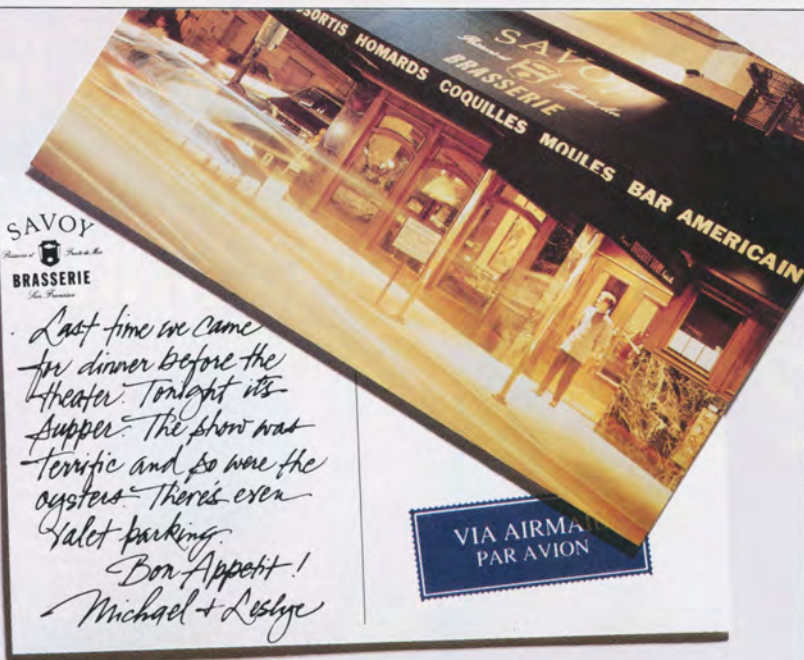 SSORTIS HOMARDS COQUILLES MOULES BAR AMERICAIN
SAVOY
BRASSERIE
SAVOY
Poissons et Fruits de Mer
BRASSERIE
San Francisco
Last time we came
for dinner before the
theater. Tonight it's
supper. The show was
terrific and so were the
oysters. There's even
valet parking.
Bon Appetit!
Michael + Leslye
VIA AIRMA
PAR AVION